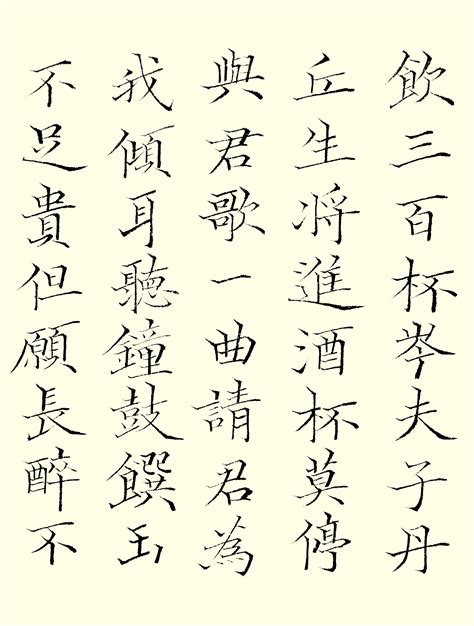 飲三百杯岑夫子丹
丘生将進酒杯莫停
與君歌一曲請君為
我傾耳聽鐘鼓饌玉
不足貴但願長醉不